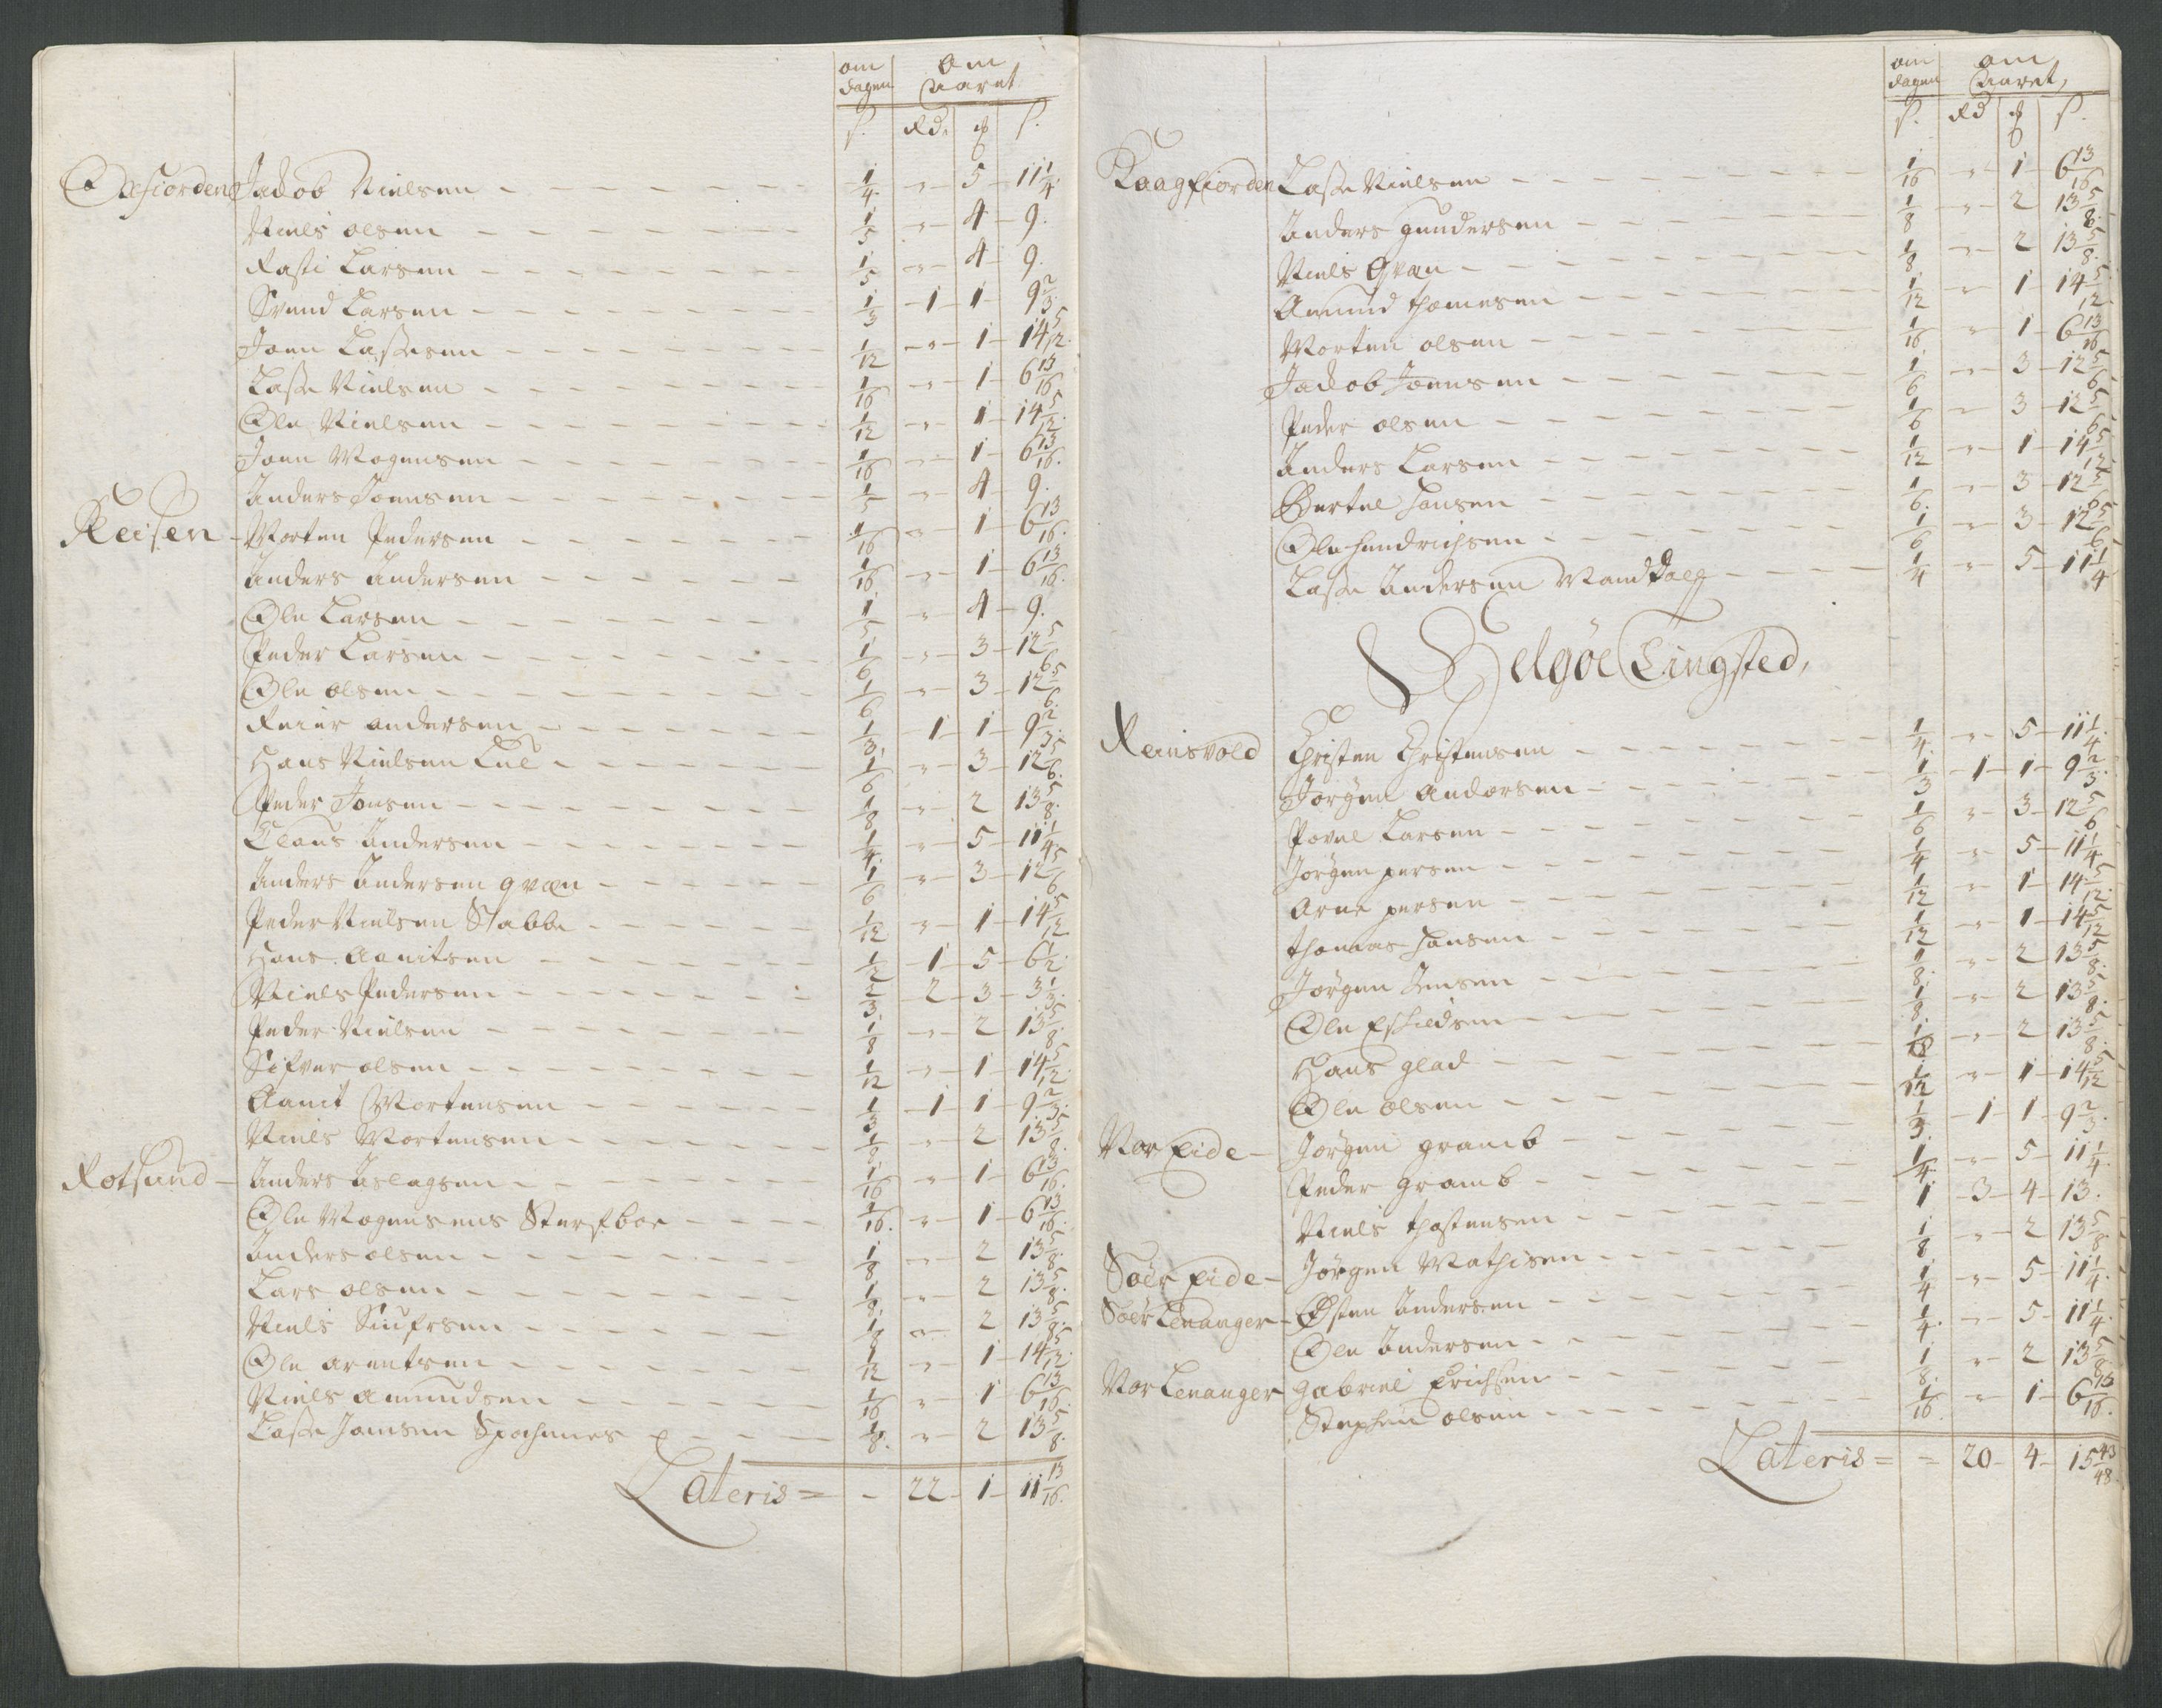 om dagen om Aaret
ß. Rd. ₰ ß.
Oxfiorden Jacob Nielsen 1/4 " 5 11 1/4
Niels olsen 1/5 " 4 9.
Rasti Larsen 1/5 " 4 9.
Svend Larsen 1/3 1 1 9 2/3
Joen Lassesen 1/12 " 1 14 5/12
Lasse Nielsen 1/16 " 1 6 13/16
Ole Nielsen 1/12 " 1 14 5/12
Joen Mogensen 1/16 " 1 6 13/16
Anders Joensen 1/5 " 4 9.
Reisen Morten Pedersen 1/16 " 1 6 13/16
Anders Andersen 1/16 " 1 6 13/16
Ole Larsen 1/5 " 4 9.
Peder Larsen 1/6 " 3 12 5/6
Ole olsen 1/6 " 3 12 5/6
Reier andersen 1/3 1 1 9 2/3
Hans Nielsen Lue 1/6 " 3 12 5/6
Peder Jonsen 1/8 " 2 13 5/8
Claus Andersen 1/4 " 5 11 1/4
Anders Andersen qvæn 1/6 " 3 12 5/6
Peder Nielsen Stabbe 1/12 " 1 14 5/12
Hans Aanitsen 1/2 1 5 6 1/2
Niels Pedersen 2/3 2 3 3 1/3
Peder Nielsen 1/8 " 2 13 5/8
Sifver olsen 1/12 " 1 14 5/12
Aanit Mortensen 1/3 1 1 9 2/3
Niels Mortensen 1/8 " 2 13 5/8
Rotsund Anders Aslagsen 1/16 " 1 6 13/16
Ole Mogensens Sterfboe 1/16 " 1 6 13/16
Anders olsen 1/8 " 2 13 5/8
Lars olsen 1/8 " 2 13 5/8
Niels Siufrsen 1/8 " 2 13 5/8
Ole arentsen 1/12 " 1 14 5/12
Niels amundsen 1/16 " 1 6 13/16
Lasse Jonsen 1/8 " 2 13 5/8
Lateris = - 22 1 11 13/16
om dagen om Aaret,
ß. Rd ₰ ß.
Kaagfiorden Lasse Nielsen 1/16 " 1 6 13/16
Anders gundersen 1/8 " 2 13 5/8
Niels Qvæn 1/8 " 2 13 5/8
Amund thomesen 1/12 " 1 14 5/12
Morten olsen 1/16 " 1 6 13/16
Jacob Joensen 1/6 " 3 12 5/6
Peder olsen 1/6 " 3 12 5/6
Anders Larsen 1/12 " 1 14 5/12
Bertel hansen 1/6 " 3 12 5/6
Ole hendrichsen 1/6 " 3 12 5/6
Lasse Andersen Mand Dalf 1/4 " 5 11 1/4
Helgöe Tingsted,
Reinsvold Christen Christensen 1/4 " 5 11 1/4
Jörgen andersen 1/3 1 1 9 2/3
Povel Larsen 1/6 " 3 12 5/6
Jörgen persen 1/4 " 5 11 1/4
Arne persen 1/12 " 1 14 5/12
thomas hansen 1/12 " 1 14 5/12
Jörgen Jensen 1/8 " 2 13 5/8
Ole Eskildsen 1/8 " 2 13 5/8
Hans glad 1/8 " 2 13 5/8
Ole olsen 1/12 " 1 14 5/12
Nor Eide Jörgen gramb 1/3 1 1 9 2/3
Peder gramb 1/4 " 5 11 1/4
Niels thostensen 1 3 4 13.
Söer Eide Jörgen Mathisen 1/8 " 2 13 5/8
Söer Lenanger Östen Andersen 1/4 " 5 11 1/4
Ole Andersen 1/4 " 5 11 1/4
Nor Lenanger gabriel Erichsen 1/8 " 2 13 5/8
Stephen olsen 1/16 " 1 6 13/16
Lateris = = 20 4 15 43/48